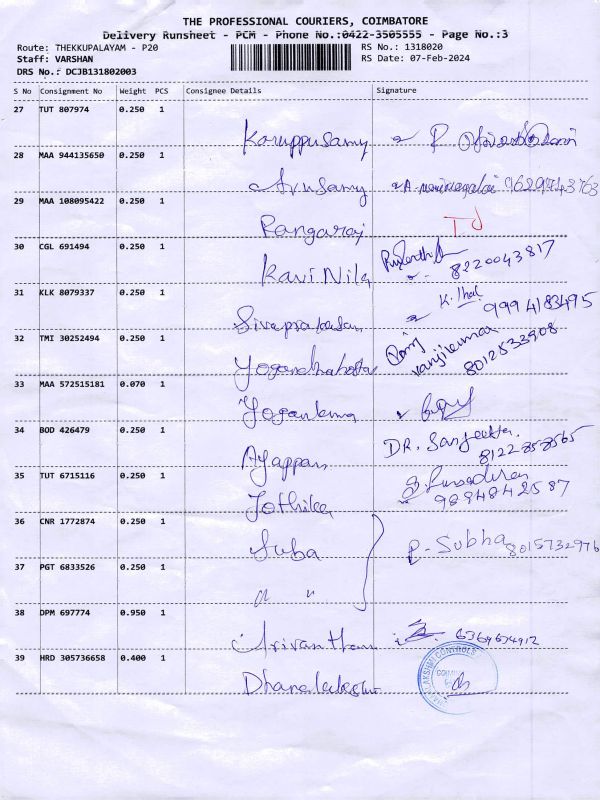 THE PROFESSIONAL COURIERS, COIMBATORE
Delivery Runsheet - PCM - Phone No.:0422-3505555 - Page No.:3
Route: THEKKUPALAYAM - P20 RS No.: 1318020
Staff: VARSHAN RS Date: 07-Feb-2024
DRS No.: DCJB131802003
S No Consignment No Weight PCS Consignee Details Signature
27 TUT 807974 0.250 1
Karuppusamy
28 MAA 944135650 0.250 1
Arusamy
29 MAA 108095422 0.250 1
Rangaraj
30 CGL 691494 0.250 1
Kavi Nila 8220043817
31 KLK 8079337 0.250 1
Sivaprakasan 9994183495
32 TMI 30252494 0.250 1
8012533908
33 MAA 572515181 0.070 1
34 BOD 426479 0.250 1
Ayappan DR. Sangeetha
35 TUT 6715116 0.250 1
Jothika 9894842587
36 CNR 1772874 0.250 1
Suba P. Subha 8015732976
37 PGT 6833526 0.250 1
" "
38 DPM 697774 0.950 1
39 HRD 305736658 0.400 1